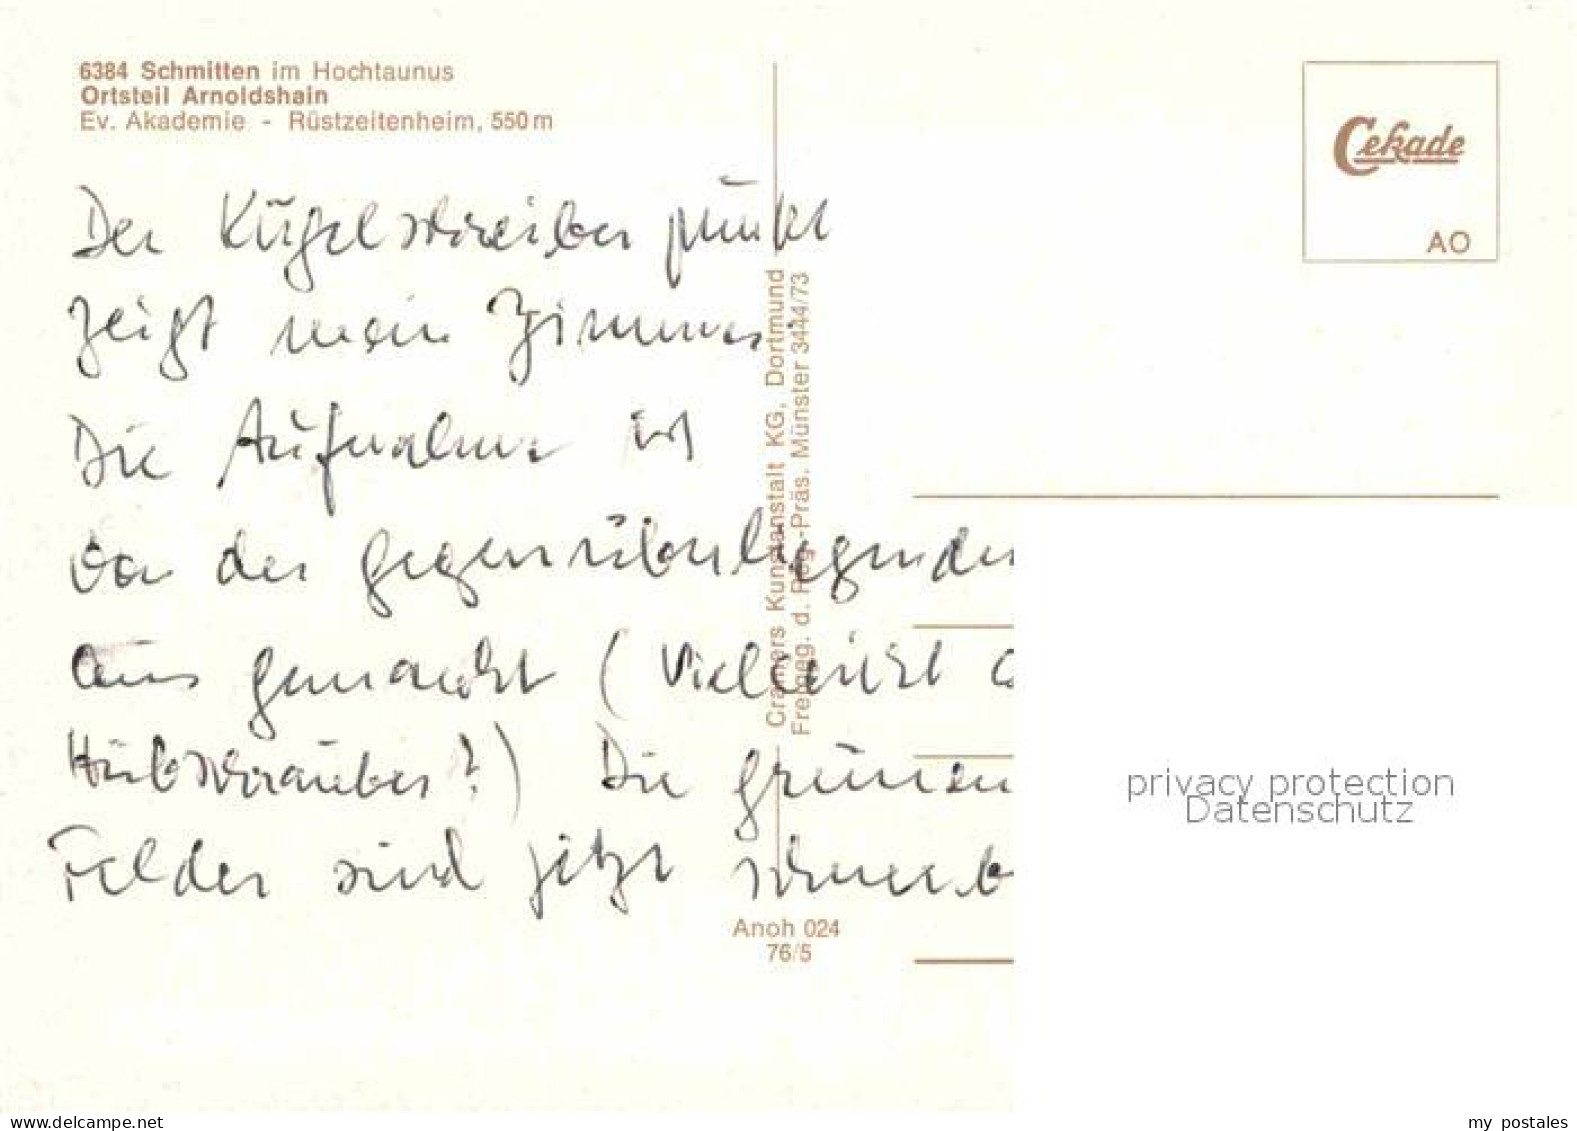 6384 Schmitten im Hochtaunus
Ortsteil Arnoldshain
Ev. Akademie - Rüstzeitenheim, 550 m
Cekade
AO
Der Kügelschreiber pünkt
zeigt mein Zimmer.
Die Aufnahme ist
von der gegenüberliegenden
aus gemacht (Vielleicht
Hübschrauber?) Die grünen
Felder sind jetzt
Cramers Kunstanstalt KG, Dortmund
Freigeg. d. Reg.-Präs. Münster 3444/73
Anoh 024
76/5
privacy protection
Datenschutz
www.delcampe.net
my_postales